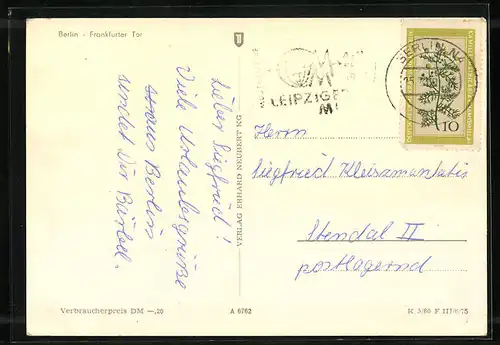 Berlin - Frankfurter Tor
Lieber Siegfried!
Viele Urlaubsgrüße
aus Berlin
sendet Dir Bärbel.
VERLAG ERHARD NEUBERT KG
LEIPZIGER
M
BERLIN N4
10
Herrn
Siegfried Kleiszmantatis
Stendal II
postlagernd
Verbraucherpreis DM —,20
A 6762
K 3/60 F 117/6/75